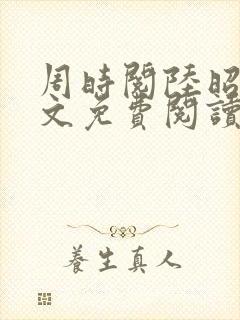 周時閱陸昭
文免費閱讀
養生真人